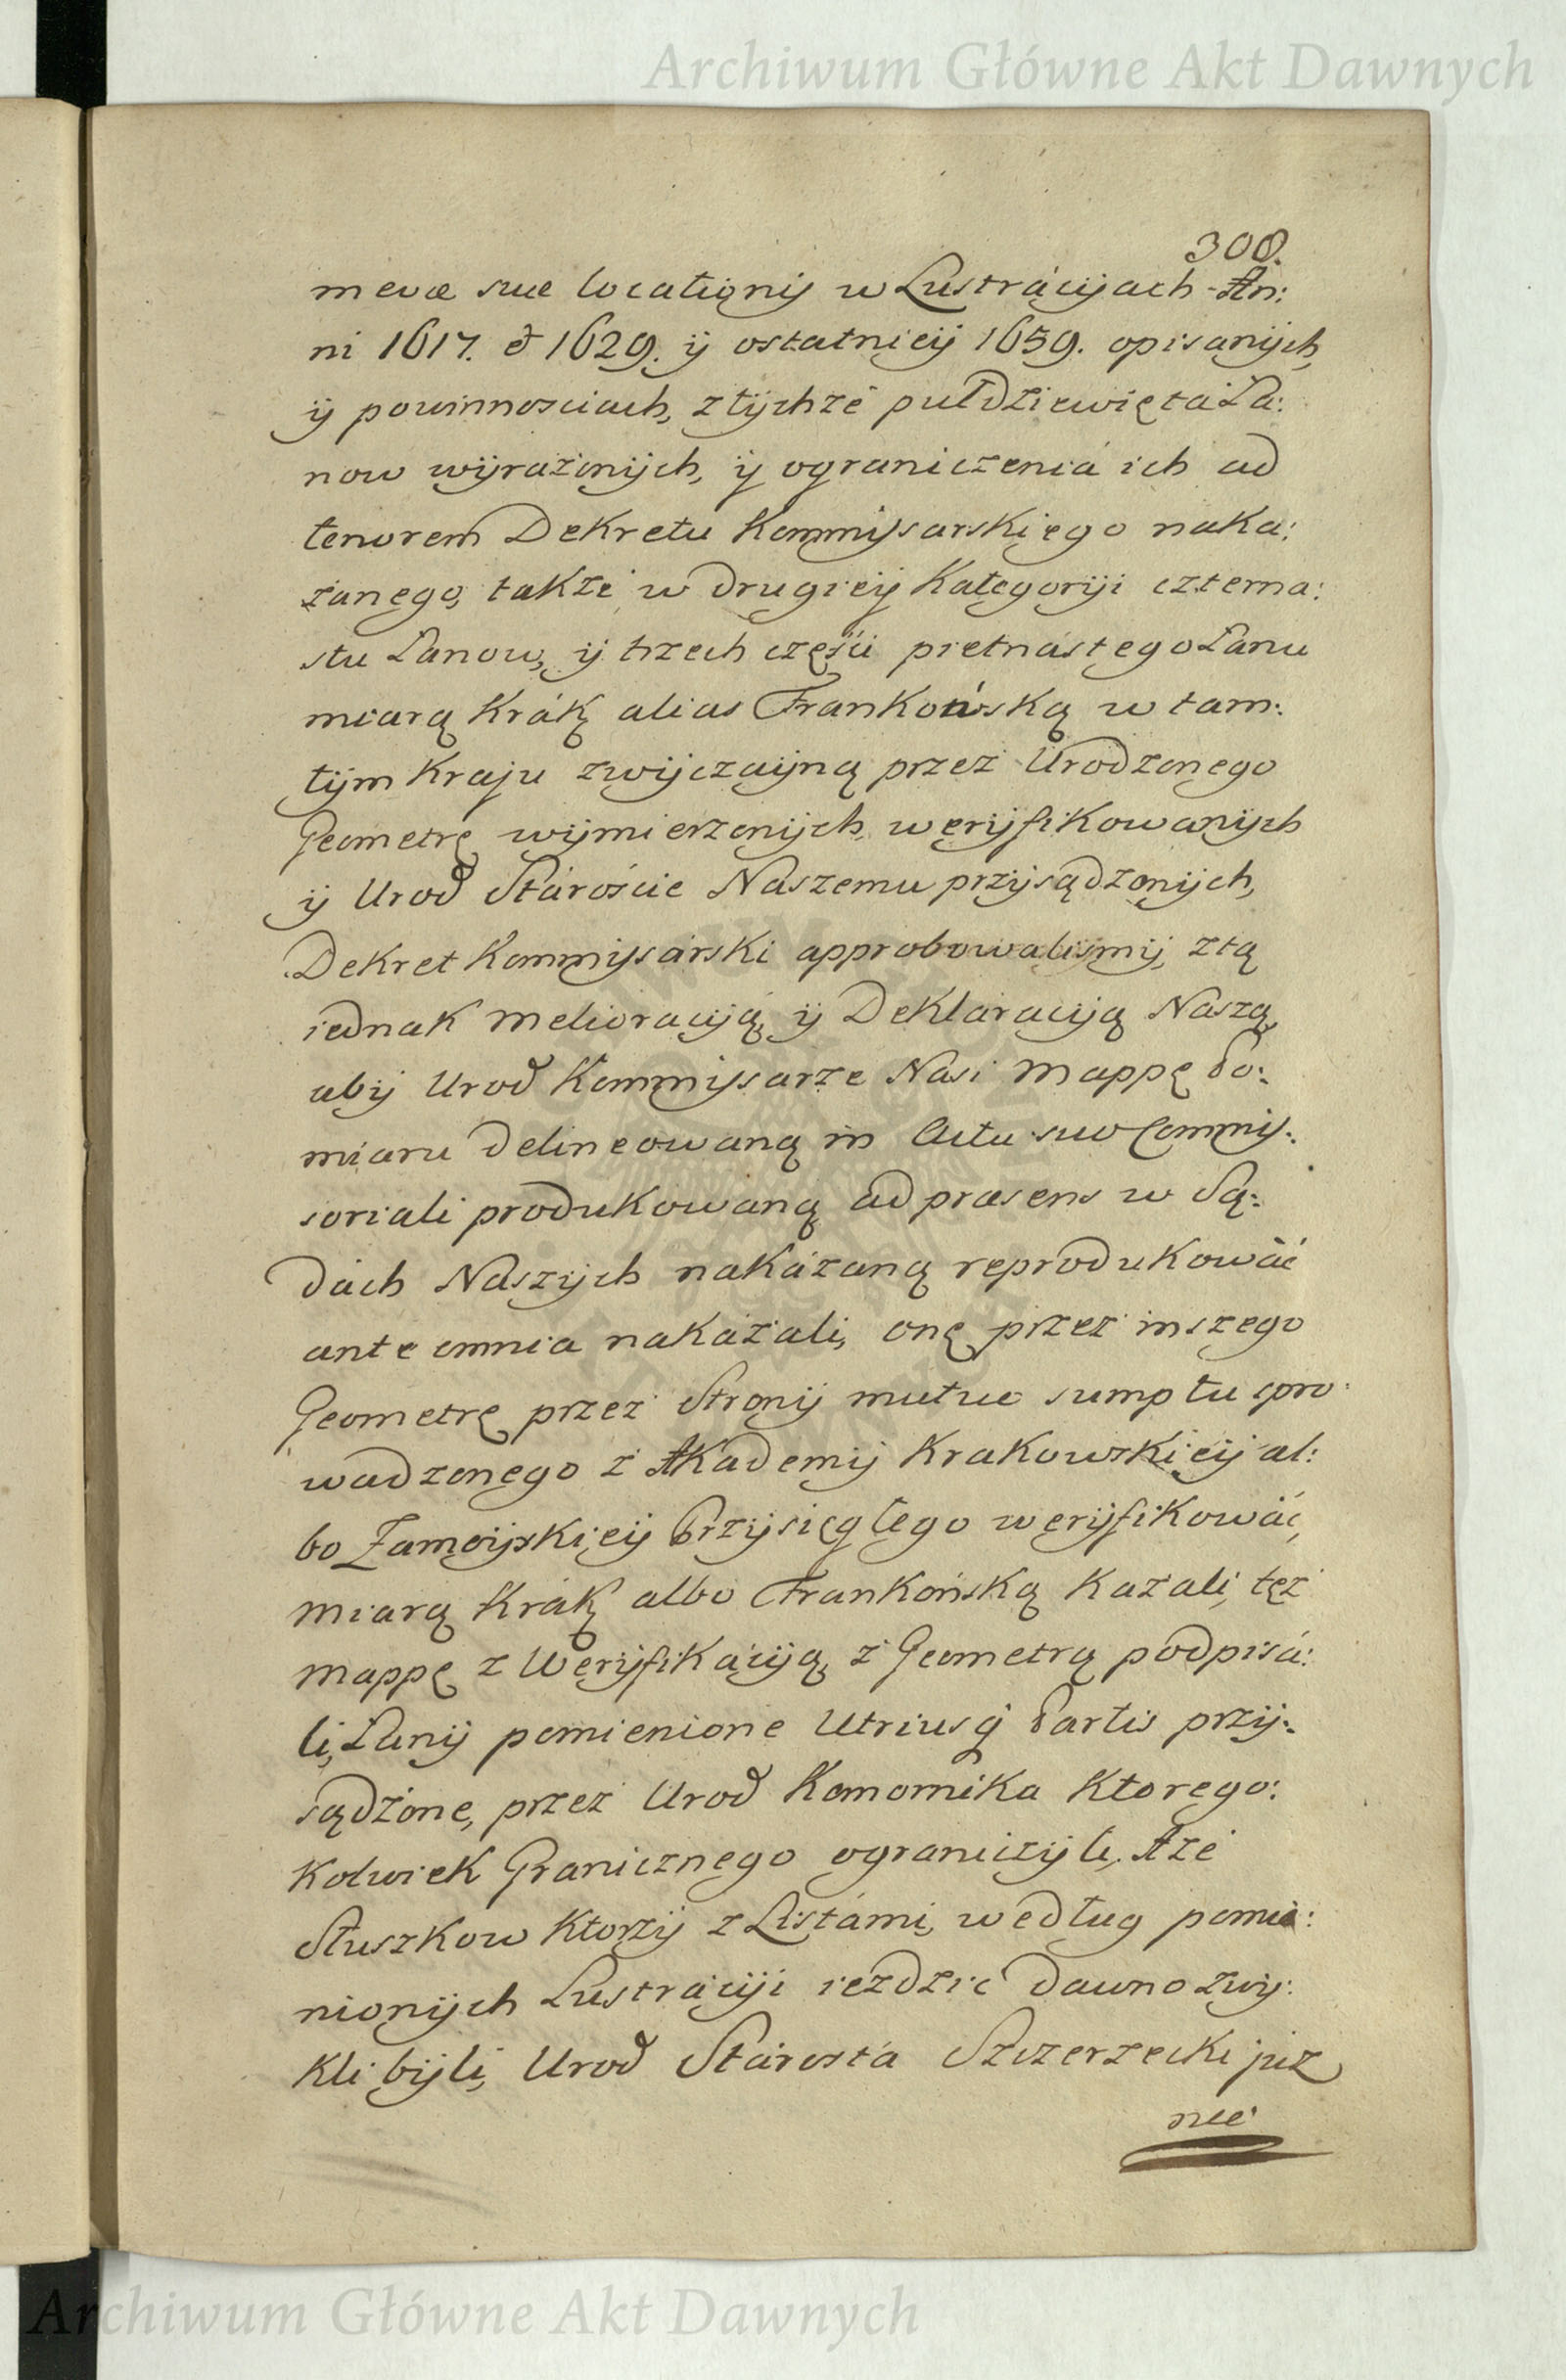 Archiwum Główne Akt Dawnych
308.
mevæ suæ locationij w Lustrácijach An:
ni 1617. et 1629. ij ostatnieij 1659. opisanijch,
ij powinnosciach, z tijchże pułdziewięta Ła:
now wijrażonijch, ij ograniczeniá ich ad
tenorem Dekretu Kommissarskiego naka:
zanego, także w drugieij Kategoriji czterna:
stu Łanow, ij trzech części pietnástego Łanu
miarą Krák alias Frankońską w tam:
tijm Kraju zwijczaijną przez Urodzonego
Geometrę wijmierzonijch, werijfikowanijch
ij Urod Stároście Naszemu przijsądzonijch,
Dekret Kommissárski approbowalismij, z tą
iednak melioraciją, ij Deklaraciją Naszą,
abij Urod Kommissarze Nasi mappę Po:
miaru delineowaną in Actu suo Commis:
soriali produkowaną ad præsens w Są:
dách Naszijch nakázaną reprodukowáć
ante omnia nakazali, onę przez inszego
Geometrę przez Stronij mutuo sumptu spro:
wadzonego z Akademij Krakowskieij al:
bo Zamoijskieij Przijsięgłego werijfikowáć,
miarą Krák albo Frankońską kazali, tęż
mappę z Werijfikáciją, z Geometrą podpisá:
li, Łanij pomienione Utriusq Partis przij:
sądzone, przez Urod Komornika Ktorego:
kolwiek Granicznego ograniczijli. A że
Służkow Ktorzij z Listámi, według pomie:
nionijch Lustráciji ieżdzić dawno zwij:
kli bijli, Urod Stárosta Szczerzecki już
nie
Archiwum Główne Akt Dawnych